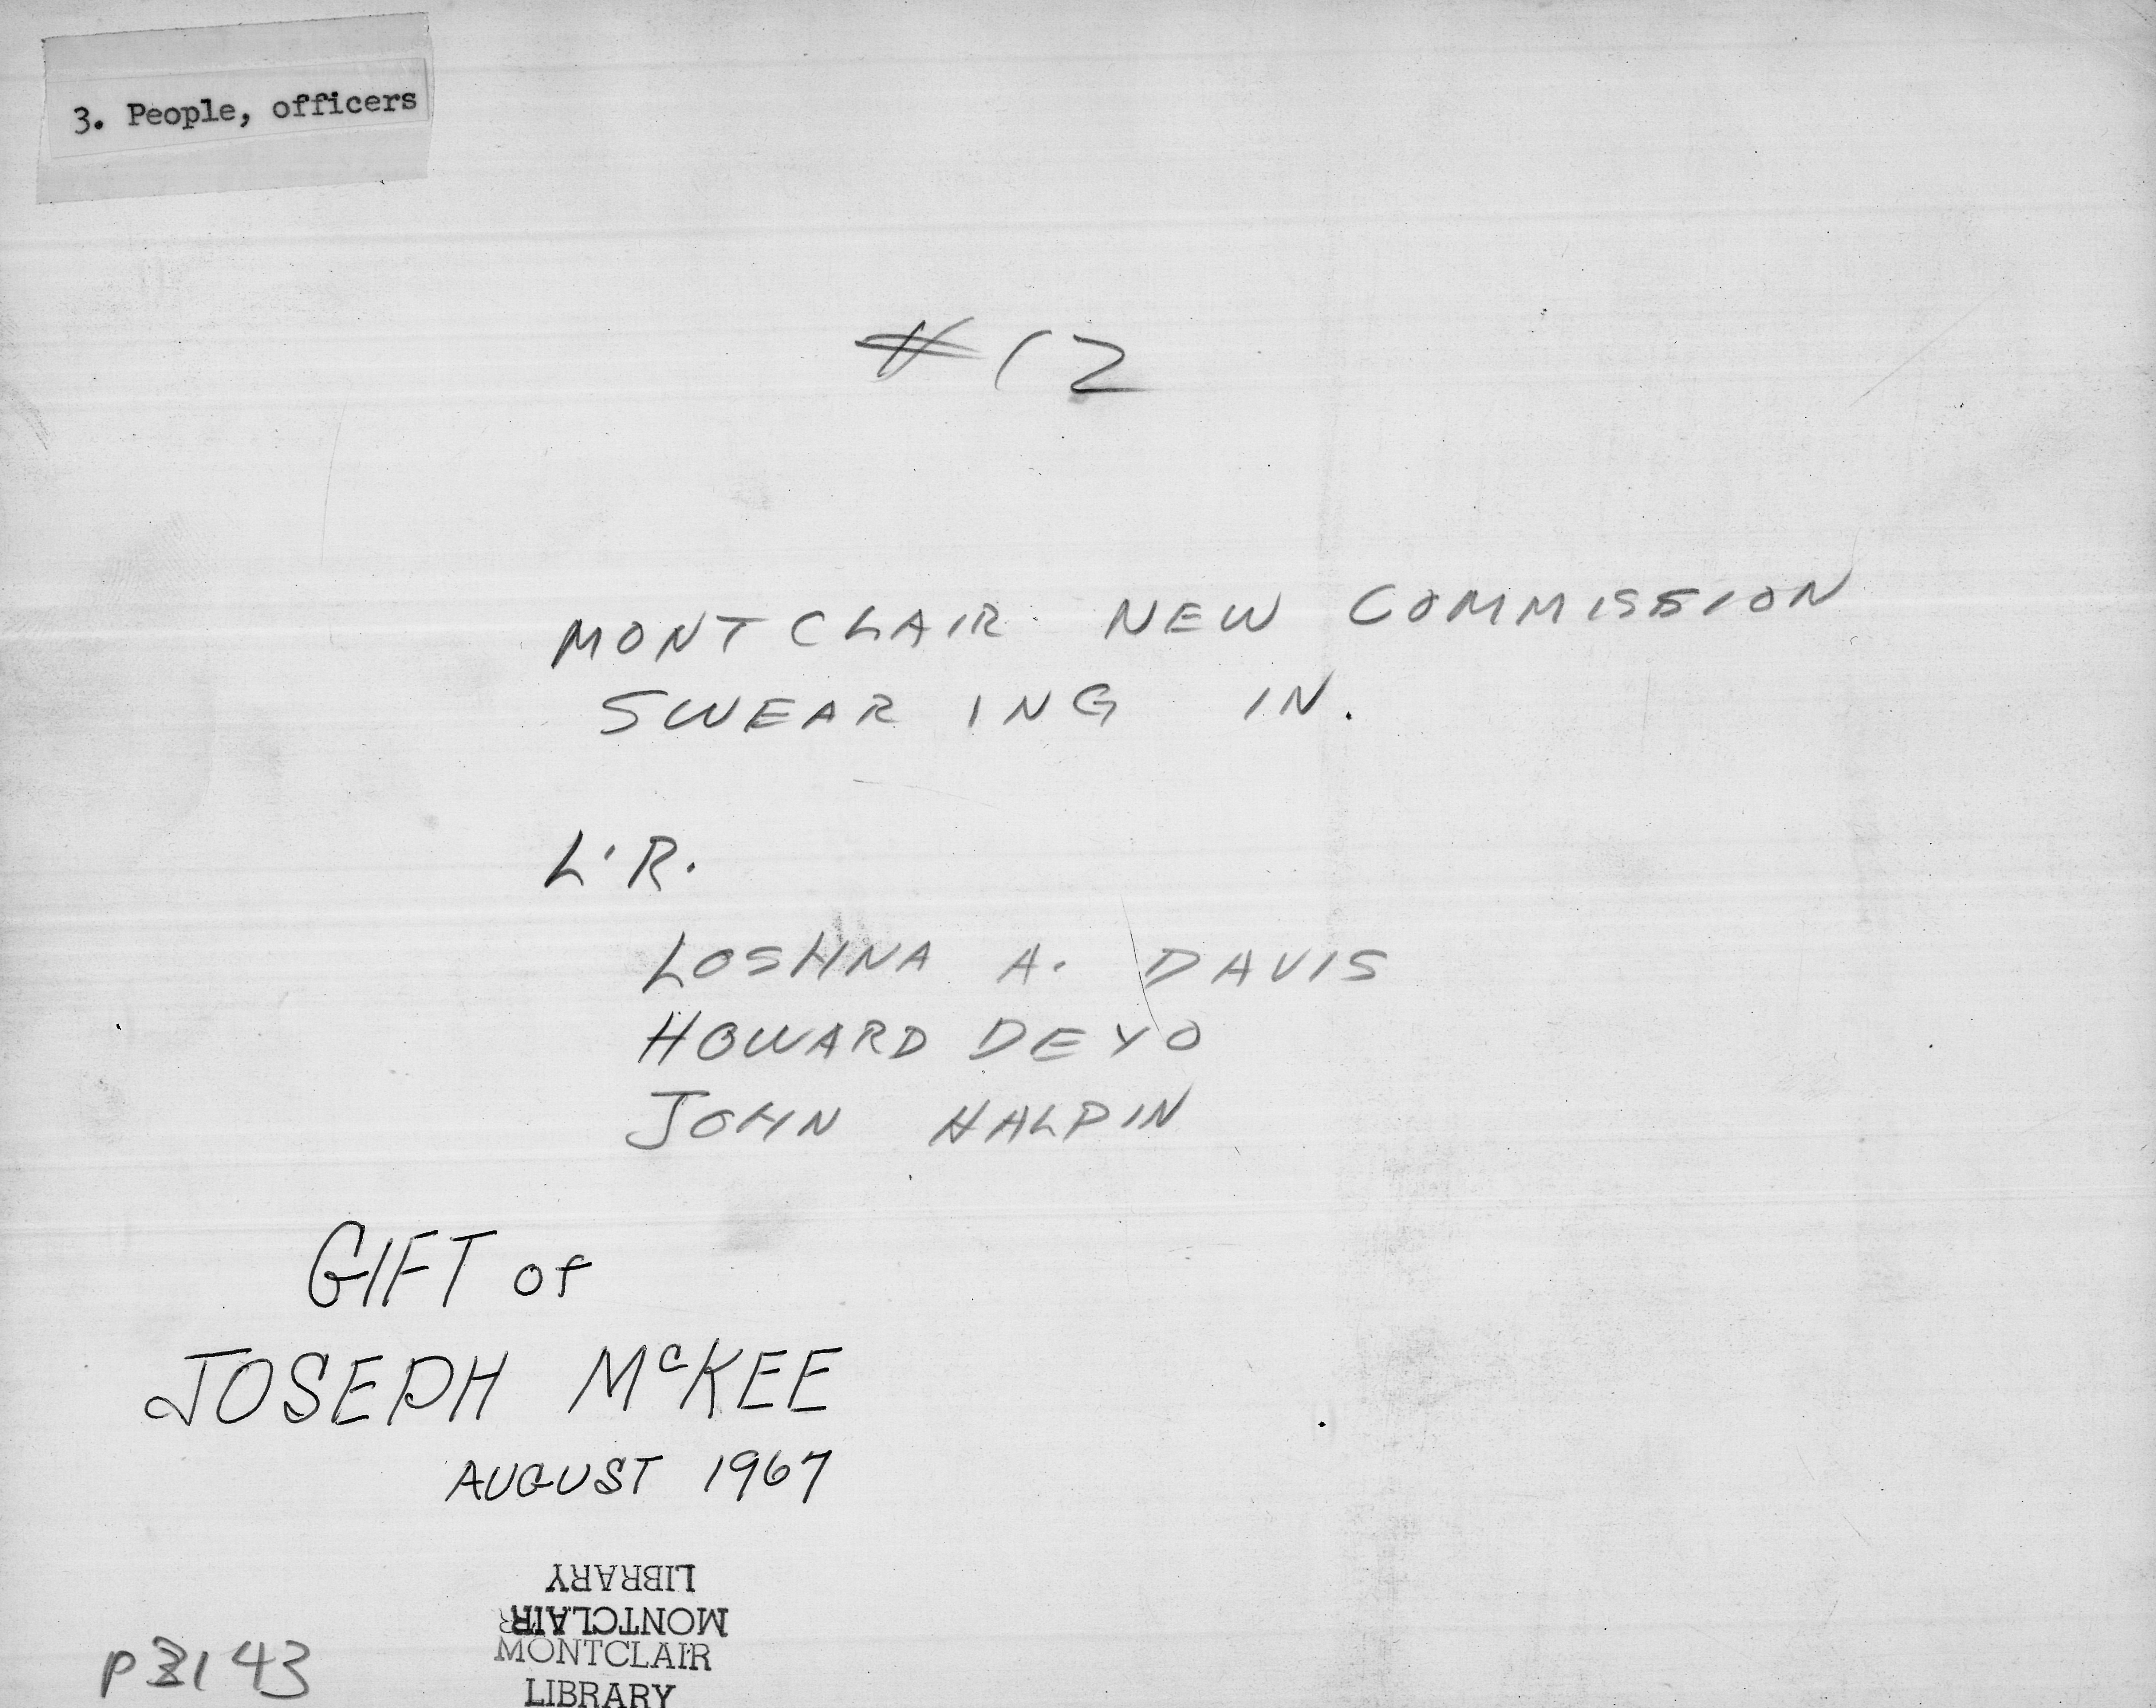 3. People, officers
#12
MONTCLAIR NEW COMMISSION
SWEARING IN.
L'R.
LOSHNA A. DAVIS
HOWARD DEYO
JOHN HALPIN
GIFT of
JOSEPH McKEE
AUGUST 1967
LIBRARY
MONTCLAIR
MONTCLAIR
LIBRARY